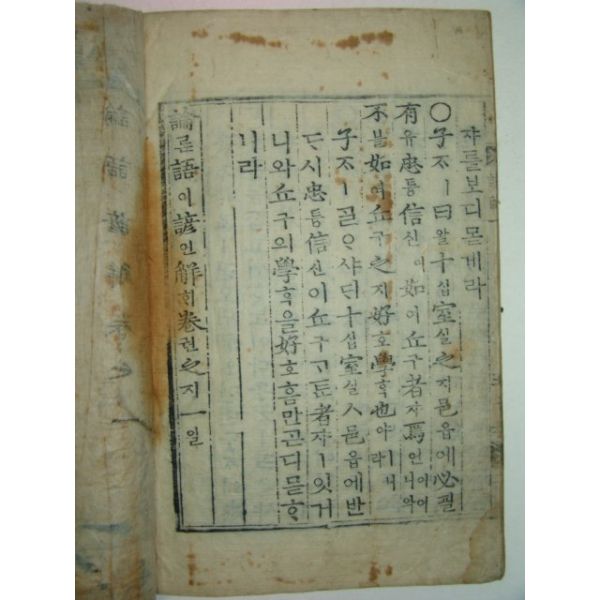 쟈를보디몯게라
○子ᄌᆞㅣ曰왈十십室실之지邑읍에必필
有유忠튱信신이如여丘구者쟈焉언이어니와
不블如여丘구之지好호學ᄒᆞᆨ也야ㅣ니라
子ᄌᆞㅣᄀᆞᆯᄋᆞ샤ᄃᆡ十십室실ㅅ邑읍에반
ᄃᆞ시忠튱信신이丘구ᄀᆞᄐᆞᆫ者쟈ㅣ잇거
니와丘구의學ᄒᆞᆨ을好호홈만ᄀᆞᆮ디몯ᄒᆞ
니라
論론語어諺언解ᄒᆡ卷권之지一일